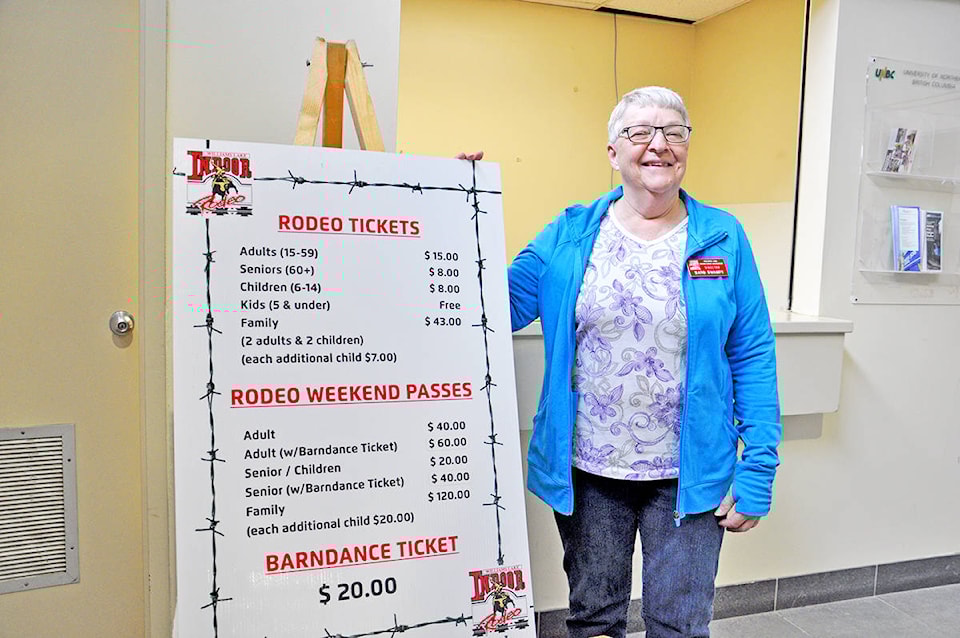 WILLIAMS LAKE
INDOOR
Rodeo
RODEO TICKETS
Adults (15-59) $ 15.00
Seniors (60+) $ 8.00
Children (6-14) $ 8.00
Kids (5 & under) Free
Family $ 43.00
(2 adults & 2 children)
(each additional child $7.00)
RODEO WEEKEND PASSES
Adult $ 40.00
Adult (w/Barndance Ticket) $ 60.00
Senior / Children $ 20.00
Senior (w/Barndance Ticket) $ 40.00
Family $ 120.00
(each additional child $20.00)
BARNDANCE TICKET
$ 20.00
WILLIAMS LAKE
INDOOR
Rodeo
UNBC
UNIVERSITY OF NORTHERN
BRITISH COLUMBIA